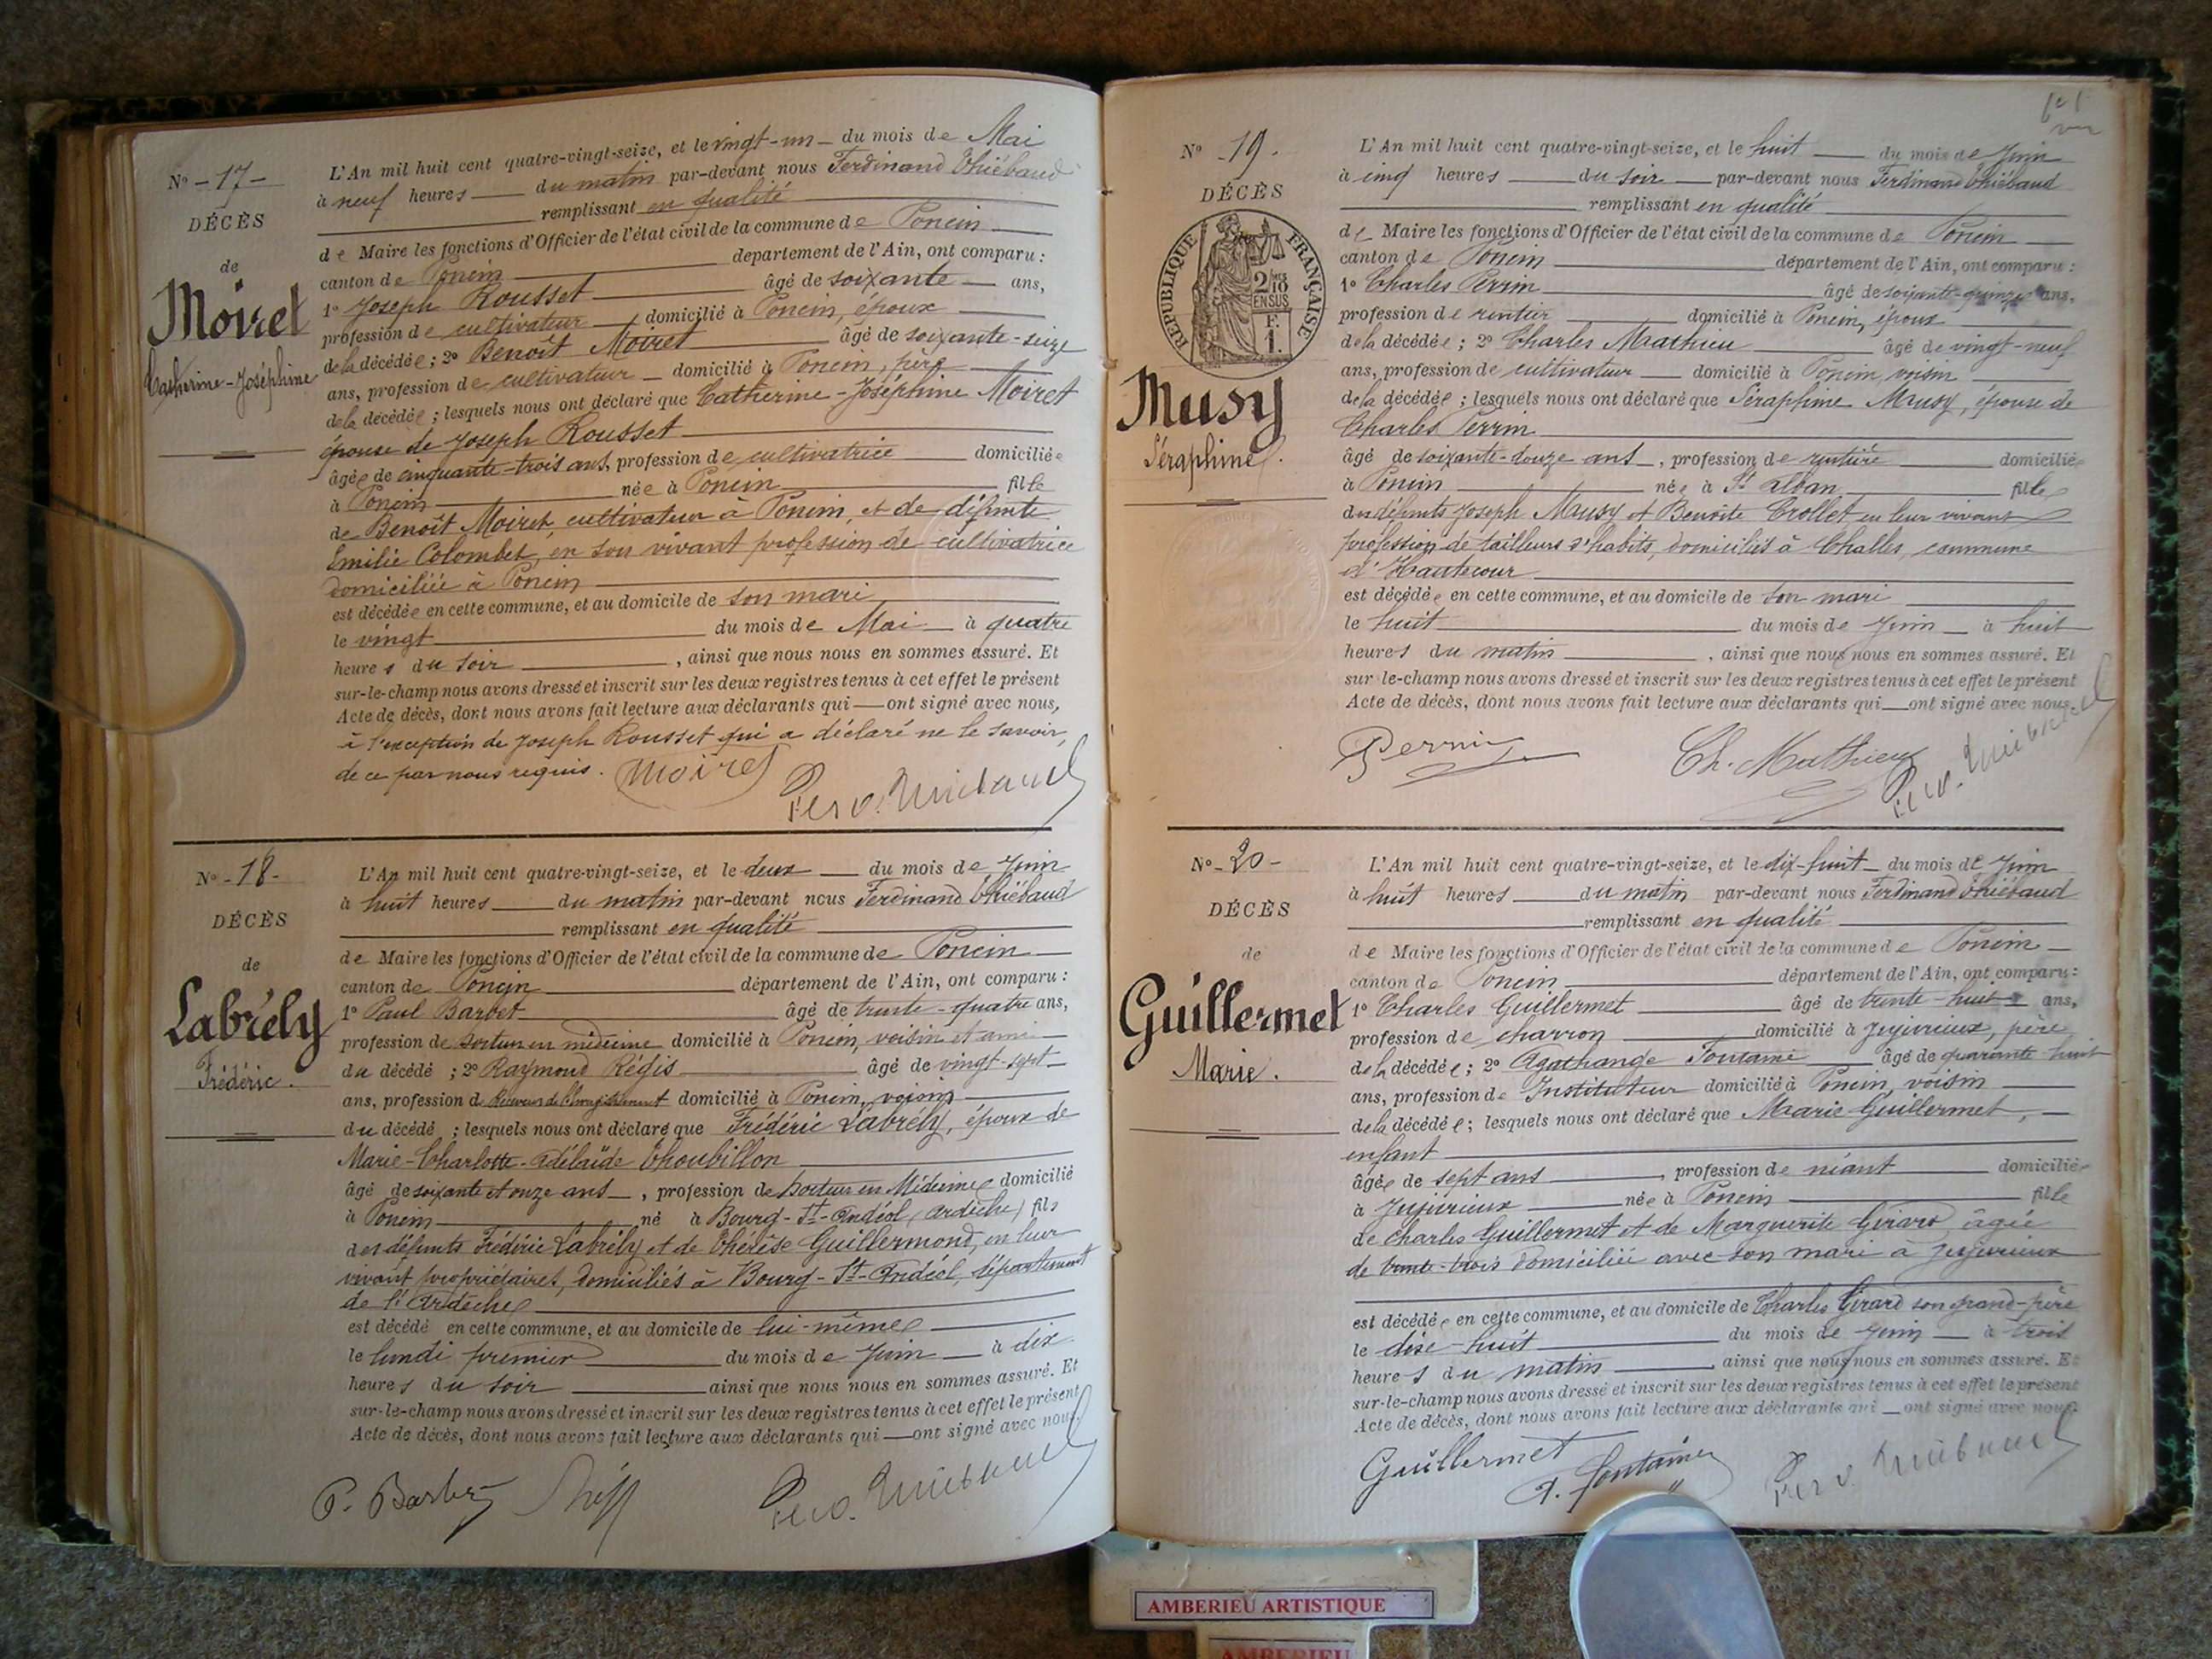 N° - 17 -
DÉCÈS
de
Moiret
Catherine-Joséphine
L'An mil huit cent quatre-vingt-seize, et le vingt-un du mois de Mai
à neuf heures du matin par-devant nous Ferdinand Thiébaud
remplissant en qualité
de Maire les fonctions d'Officier de l'état civil de la commune de Poncin
canton de Poncin département de l'Ain, ont comparu :
1° Joseph Rousset âgé de soixante ans,
profession de cultivateur domicilié à Poncin, époux
de la décédée ; 2° Benoît Moiret âgé de soixante-seize
ans, profession de cultivateur domicilié à Poncin, père
de la décédée ; lesquels nous ont déclaré que Catherine-Joséphine Moiret
épouse de Joseph Rousset
âgée de cinquante-trois ans, profession de cultivatrice domiciliée
à Poncin née à Poncin fille
de Benoît Moiret, cultivateur à Poncin, et de défunte
Emilie Colombet, en son vivant profession de cultivatrice
domiciliée à Poncin
est décédée en cette commune, et au domicile de son mari
le vingt du mois de Mai à quatre
heures du soir , ainsi que nous nous en sommes assuré. Et
sur-le-champ nous avons dressé et inscrit sur les deux registres tenus à cet effet le présent
Acte de décès, dont nous avons fait lecture aux déclarants qui ont signé avec nous,
à l'exception de Joseph Rousset qui a déclaré ne le savoir,
de ce par nous requis. Moiret Ferd. Thiébaud
N° - 18 -
DÉCÈS
de
Labrély
Frédéric.
L'An mil huit cent quatre-vingt-seize, et le deux du mois de Juin
à huit heures du matin par-devant nous Ferdinand Thiébaud
remplissant en qualité
de Maire les fonctions d'Officier de l'état civil de la commune de Poncin
canton de Poncin département de l'Ain, ont comparu :
1° Paul Barbet âgé de trente-quatre ans,
profession de docteur en médecine domicilié à Poncin, voisin et ami
du décédé ; 2° Raymond Régis âgé de vingt-sept
ans, profession de Receveur de l'Enregistrement domicilié à Poncin, voisin
du décédé ; lesquels nous ont déclaré que Frédéric Labrély, époux de
Marie-Charlotte-Adélaïde Choubillon
âgé de soixante et onze ans , profession de Docteur en Médecine domicilié
à Poncin né à Bourg-St-Andéol (Ardèche) fils
des défunts Frédéric Labrély et de Thérèse Guillermond, en leur
vivant propriétaires, domiciliés à Bourg-St-Andéol, département
de l'Ardèche
est décédé en cette commune, et au domicile de lui-même
le lundi premier du mois de Juin à dix
heures du soir ainsi que nous nous en sommes assuré. Et
sur-le-champ nous avons dressé et inscrit sur les deux registres tenus à cet effet le présent
Acte de décès, dont nous avons fait lecture aux déclarants qui ont signé avec nous.
P. Barbet Ferd. Thiébaud
N° 19.
DÉCÈS
RÉPUBLIQUE FRANÇAISE
2/10
EN SUS
F.
1.
Musy
Séraphine.
L'An mil huit cent quatre-vingt-seize, et le huit du mois de Juin
à cinq heures du soir par-devant nous Ferdinand Thiébaud
remplissant en qualité
de Maire les fonctions d'Officier de l'état civil de la commune de Poncin
canton de Poncin département de l'Ain, ont comparu :
1° Charles Perrin âgé de soixante-quinze ans,
profession de rentier domicilié à Poncin, époux
de la décédée ; 2° Charles Mathieu âgé de vingt-neuf
ans, profession de cultivateur domicilié à Poncin, voisin
de la décédée ; lesquels nous ont déclaré que Séraphine Musy, épouse de
Charles Perrin
âgé de soixante-douze ans , profession de rentière domiciliée
à Poncin née à St Alban fille
des défunts Joseph Musy et Benoite Crollet en leur vivant
profession de tailleurs d'habits, domiciliés à Challes, commune
d'Hautecour
est décédée en cette commune, et au domicile de son mari
le huit du mois de Juin à huit
heures du matin , ainsi que nous nous en sommes assuré. Et
sur-le-champ nous avons dressé et inscrit sur les deux registres tenus à cet effet le présent
Acte de décès, dont nous avons fait lecture aux déclarants qui ont signé avec nous.
Perrin Ch. Mathieu Ferd. Thiébaud
N° - 20 -
DÉCÈS
de
Guillermet
Marie.
L'An mil huit cent quatre-vingt-seize, et le dix-huit du mois de Juin
à huit heures du matin par-devant nous Ferdinand Thiébaud
remplissant en qualité
de Maire les fonctions d'Officier de l'état civil de la commune de Poncin
canton de Poncin département de l'Ain, ont comparu :
1° Charles Guillermet âgé de trente-huit ans,
profession de charron domicilié à Jujurieux, père
de la décédée ; 2° Agathange Fontaine âgé de quarante huit
ans, profession de Instituteur domicilié à Poncin, voisin
de la décédée ; lesquels nous ont déclaré que Marie Guillermet,
enfant
âgée de sept ans , profession de néant domiciliée
à Jujurieux née à Poncin fille
de Charles Guillermet et de Marguerite Girard, âgée
de trente-trois domiciliée avec son mari à Jujurieux
est décédée en cette commune, et au domicile de Charles Girard son grand-père
le dix-huit du mois de Juin à trois
heures du matin , ainsi que nous nous en sommes assuré. Et
sur-le-champ nous avons dressé et inscrit sur les deux registres tenus à cet effet le présent
Acte de décès, dont nous avons fait lecture aux déclarants qui ont signé avec nous.
Guillermet A. Fontaine Ferd. Thiébaud
AMBERIEU ARTISTIQUE
AMBERIEU